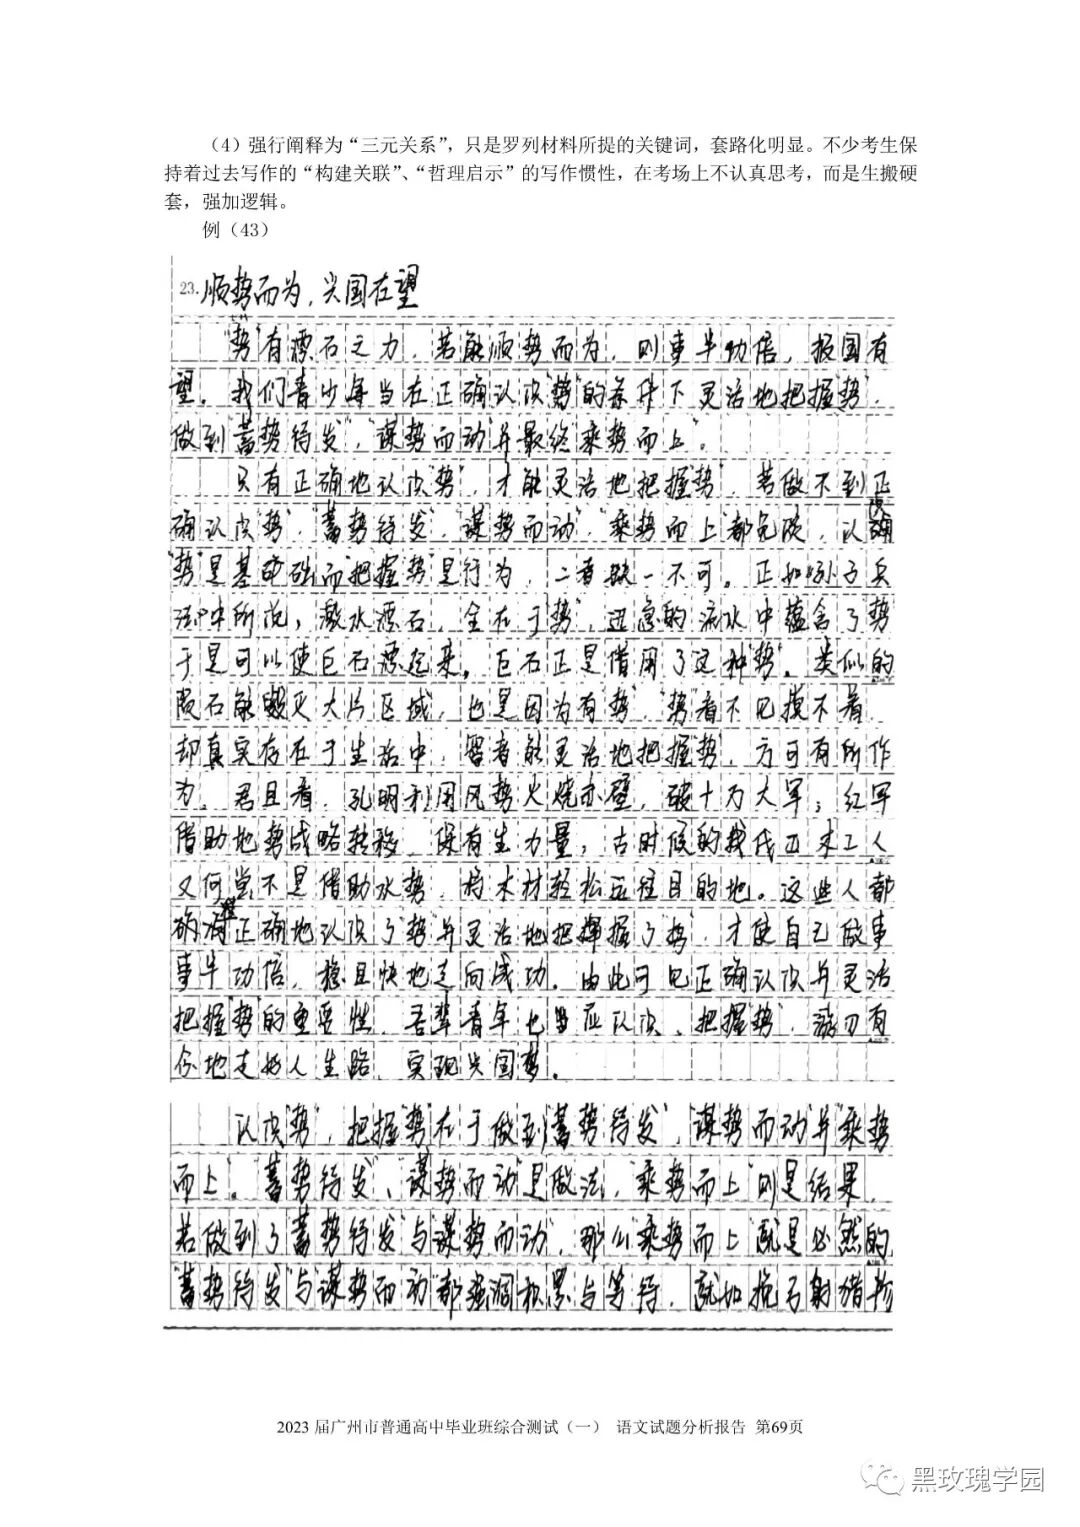 （4）强行阐释为“三元关系”，只是罗列材料所提的关键词，套路化明显。不少考生保
持着过去写作的“构建关联”、“哲理启示”的写作惯性，在考场上不认真思考，而是生搬硬
套，强加逻辑。
例（43）
23. 顺势而为，兴国在望
“势”有漂石之力，若能顺势而为，则事半功倍，报国有
望。我们青少年当在正确认识“势”的条件下灵活地把握“势”，
做到“蓄势待发”，“谋势而动”并最终“乘势而上”。
只有正确地认识“势”，才能灵活地把握“势”，若做不到正
确认识“势”，“蓄势待发”，“谋势而动”，“乘势而上”都免谈，认识
“势”是基础而把握势是行为，二者缺一不可。正如《孙子兵
法》中所说，激水漂石，全在于“势”，迅急的流水中蕴含了“势”
于是可以使巨石漂起来，巨石正是借用了这种“势”。类似的
陨石能毁灭大片区域，也是因为有“势”，“势”看不见摸不着，
却真实存在于生活中，智者能灵活地把握“势”，方可有所作
为。君且看，孔明利用风势火烧赤壁，破十万大军；红军
借助地势战略转移，保有生力量；古时候的伐木工人
又何尝不是借助水势，将木材轻松运往目的地。这些人都
正确地认识了“势”并灵活地把握了“势”，才使自己做事
事半功倍，稳且快地走向成功。由此可见正确认识并灵活
把握“势”的重要性，吾辈青年也当应认识、把握“势”，游刃有
余地走好人生路，实现兴国梦。
认识“势”，把握“势”在于做到“蓄势待发”，“谋势而动”并“乘势
而上”。“蓄势待发”、“谋势而动”是做法，“乘势而上”则是结果，
若做到了“蓄势待发”与“谋势而动”，那么“乘势而上”就是必然的
“蓄势待发”与“谋势而动”都强调积累与等待，就如挽弓射猎物
2023 届广州市普通高中毕业班综合测试（一） 语文试题分析报告 第69页
黑玫瑰学园